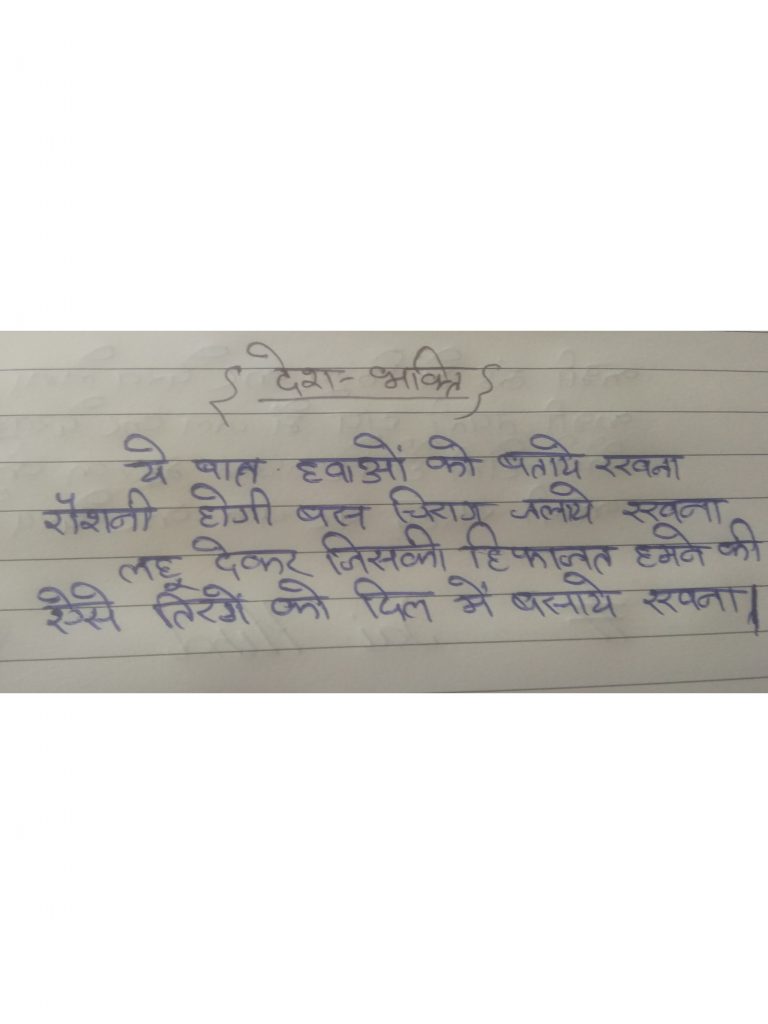 { देश- भक्ति }
ये बात हवाओं को बताये रखना
रौशनी होगी बस चिराग जलाये रखना
लहू देकर जिसकी हिफाजत हमने की
ऐसे तिरंगे को दिल में बसाये रखना।